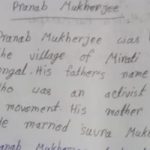 Pranab Mukherjee
Pranab Mukherjee was
the village of Mirati
engal. His fathers name
who was an activist
movement. His mother
He married Suvra Mukh